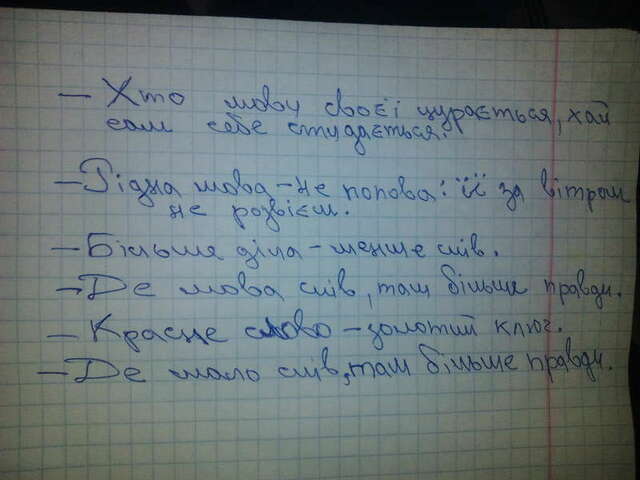 — Хто мову своєї цурається, хай
сам себе стидається.
— Рідна мова - не полова: її за вітром
не розвієш.
— Більше діла - менше слів.
— Де мова слів, там більше правди.
— Красне слово - золотий ключ.
— Де мало слів, там більше правди.